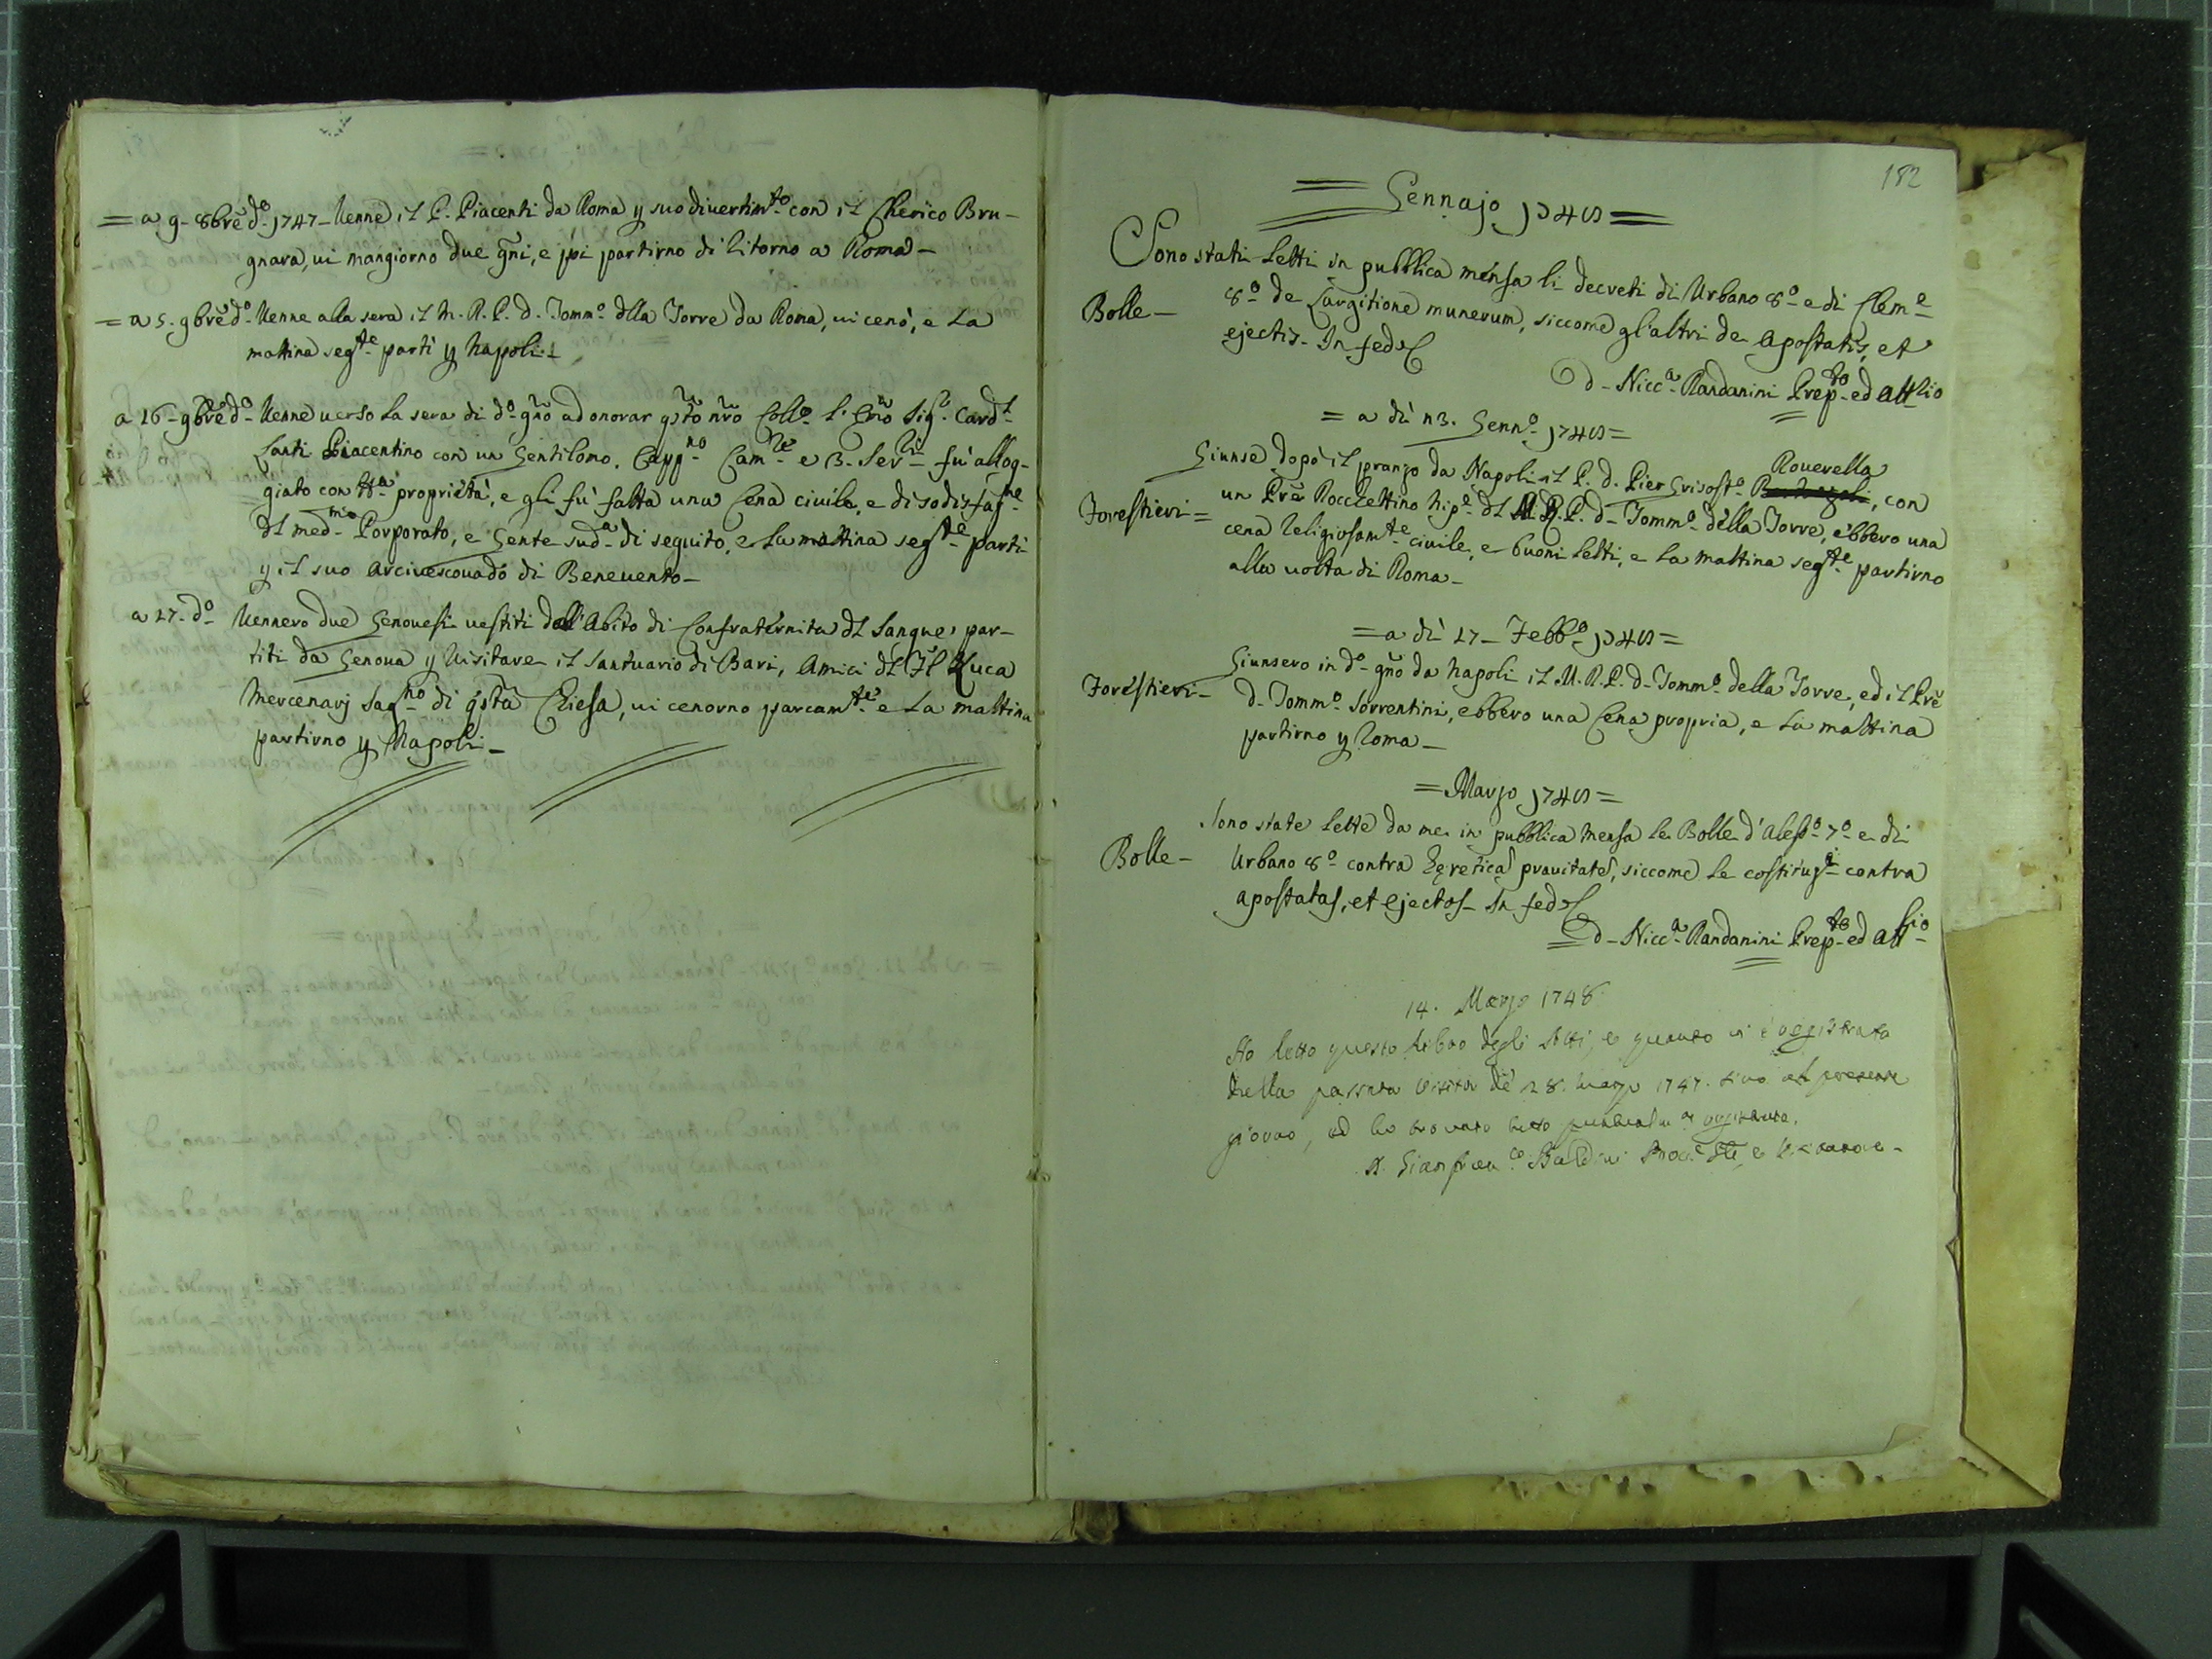 = a 9- 8bre do. 1747- Venne il P. Piacenti da Roma p suo divertimto con il Cherico Bru-
gnara, vi mangiorno due gni, e poi partirno di litorno a Roma-
= a 5. 9bre do- Venne alla sera il M. R. P. d. Tommo. dlla Torre da Roma, vi cenò, e La
mattina segte- partì p Napoli-
a 16- 9bre do- Venne verso La sera di do- gno ad onorar qsto nro Collo. l'Emo Sigr. Cardl-
Lanti Piacentino con un Gentilomo, Cappno- Camre- e 3- Servri- fù allog-
giato con tta proprietà, e gli fù fatta una Cena civile, e di sodisfazne
dl medmo- Porporato, e Gente sudа- di seguito, e La mattina segte- partì
p il suo Arcivescovado di Benevento-
a 27- do- Vennero due Genovesi vestiti dell'Abito di Confraternita dl Sangue, par-
titi da Genova p Visitare il Santuario di Bari, Amici dl Fl Luca
Mercenarj Sagno- di qsta Chiesa, vi cenorno parcamte- e La mattina
partirno p Napoli-
182
= Gennajo 1748 =
Sono stati Letti in pubblica mensa li decreti di Urbano 8o- e di Cleme-
Bolle- 8o- de Largitione munerum, siccome gl'altri de Apostatis, et
ejectis- In fede
d- Nicca- Randanini Prepto- ed Attlio
= a dì 13. Genno- 1748 =
Giunse dopò il pranzo da Napoli il P. d. Pier Grisosto- Roverella, con
Forestieri= un Pre Rocchettino Nipe- dl M. R. P. d- Tommo- della Torre, ebbero una
cena religiosamte- civile, e buoni Letti, e La mattina segte- partirno
alla volta di Roma-
= a dì 27- Febbo- 1748 =
Giunsero in do- gno da Napoli il M. R. P. d- Tommo- della Torre, ed il Pre
Forestieri- d- Tommo- Sorrentini, ebbero una Cena propria, e La mattina
partirno p Roma-
= Marzo 1748 =
Sono state Lette da me in pubblica Mensa Le Bolle d'Alesso- 7o- e di
Bolle- Urbano 8o- contra hęretica pravitate, siccome Le costituzi- contra
apostatas, et ejectos- In fede
= d- Nicca- Randanini Prepto- ed Attlio-
14. Marzo 1748.
Ho letto questo Libro degli Atti, e quanto vi è registrato
dalla passata Visita de 28. Marzo 1747. sino al presente
giorno, ed ho trovato tutto
D. Gianfranco Baldini e Visitatore-